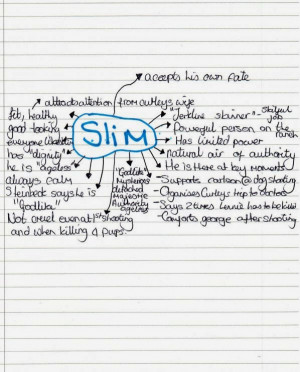 accepts his own fate
attracts attention from curleys wife
fit, healthy
good-looking
everyone
has "dignity"
he is "ageless"
always calm
Steinbeck says he is
"Godlike"
Not cruel even at 1st shooting
and when killing 4 pups.
Slim
"Godlike"
Mysterious
detached
Majestic
Authority
ageless
"Jerkline skinner" - skilful
job
Powerful person on the
ranch
Has limited power
natural air of authority
He is there at key moments
- Supports carlson @ dog shooting
- Organises Curley's trip to doctors
- Says 2 times Lennie has to be killed
- Comforts george after shooting